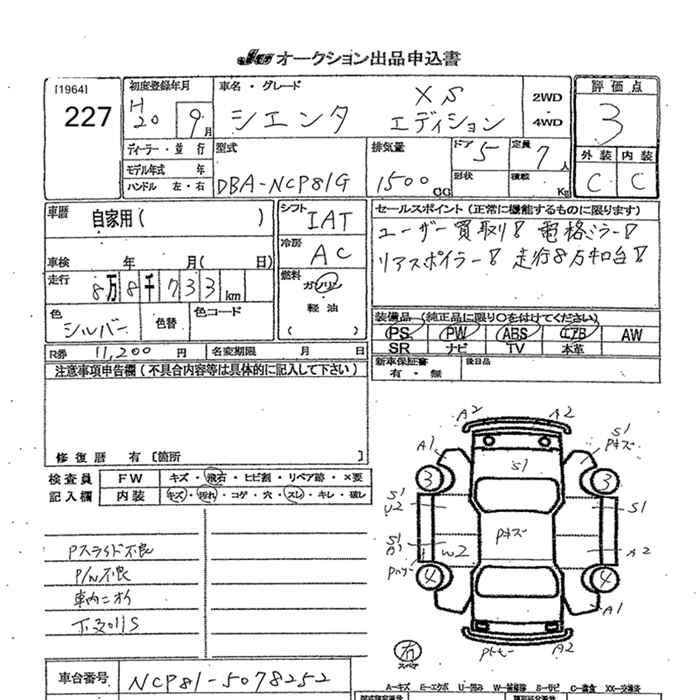 オークション出品申込書
[1964]
227
初度登録年月
H
20 9月
車名・グレード
シエンタ
XS
エディション
2WD
4WD
評価点
3
外装 内装
C C
ディーラー・並行
モデル年式 年
ハンドル 左・右
型式
DBA-NCP81G
排気量
1500 CC
ドア 5
形状
定員 7人
積載 Kg
車歴 自家用( )
車検 年 月( 日)
走行 8万8千733km
色 シルバー
色替
色コード
シフト IAT
冷房 AC
燃料
ガソリン
軽油
( )
セールスポイント(正常に機能するものに限ります)
ユーザー買取り! 電格ミラー!
リアスポイラー! 走行8万キロ台!
装備品 (純正品に限り○を付けてください)
PS PW ABS エアB AW
SR ナビ TV 本革
新車保証書
有・無
後日品
R券 11,200円
名変期限 月 日
注意事項申告欄(不具合内容等は具体的に記入して下さい)
修復歴 有 [箇所 ]
検査員
記入欄
FW キズ・飛石・ヒビ割・リペア跡・×要
内装 キズ・汚れ・コゲ・穴・スレ・キレ・破レ
Pスライド不良
P/W不良
車内ニオイ
A2 A2
A1
S1
Pキズ
3 3
S1
S1
U2
S1
Pキズ
S1
A1
W2
A2
4 4
A1
A2
有
スペア
車台番号 NCP81-5078252
A-キズ E-エクボ U-凹み W-補修跡 S-サビ C-腐食 XX-交換済